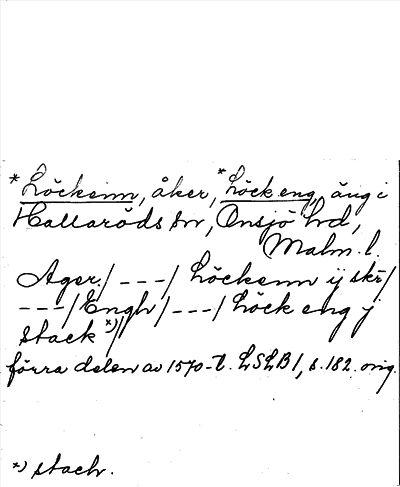 *Löckenn, åker, *Löck eng, äng i
Hallaröds sn, Onsjö hd,
Malm. l.
Ager/ --- / Löckenn ij skr/
--- / Engh / --- / Löck eng j
stack *)/
förra delen av 1570-t. LSLB 1, s. 182. orig.
*) stach.